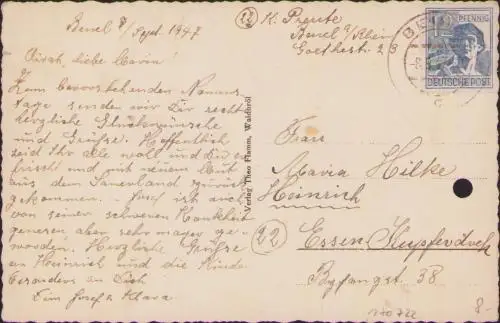 Beuel 8/Sept. 1947
liebe Maria!
Zum bevorstehenden Namens-
tage senden wir Dir recht
herzliche Glückwünsche
und Grüße. Hoffentlich
seid Ihr alle wohl und Du er-
frischt und mit neuem Mut
aus dem Sauerland zurück
gekommen. Josef ist auch
von seiner schweren Krankheit
genesen aber sehr mager ge-
worden. Herzliche Grüße
an Heinrich und die Kinder
besonders an Dich
Dein Josef u Klara
Verlag Theo Flamm, Waldbröl
22 K.
Beuel a/Rhein
Goethestr. 23
12 PFENNIG
DEUTSCHE POST
Frau
Maria Hilke
Heinrich
22 Essen Kupferdreh
Byfangst. 38
170722
8.-